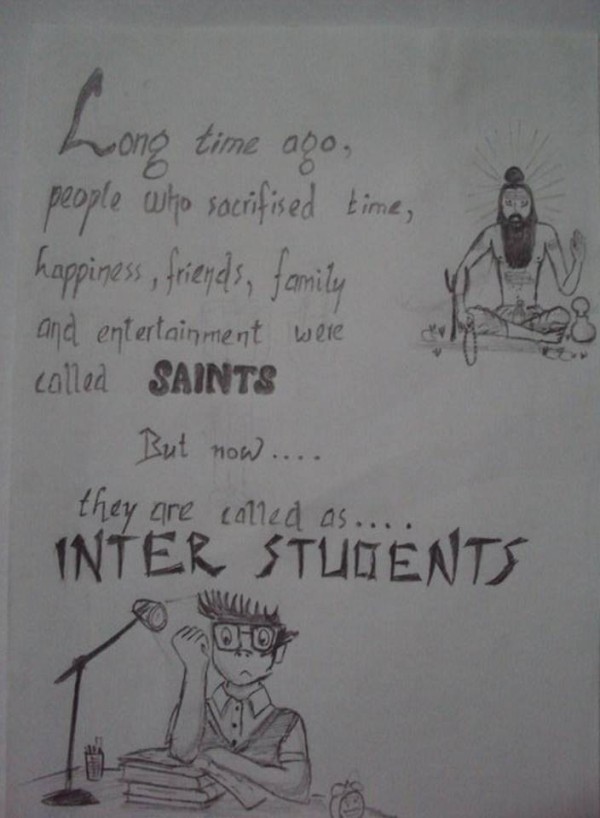 Long time ago,
people who sacrifised time,
happiness, friends, family
and entertainment were
called SAINTS
But now....
they are called as....
INTER STUDENTS